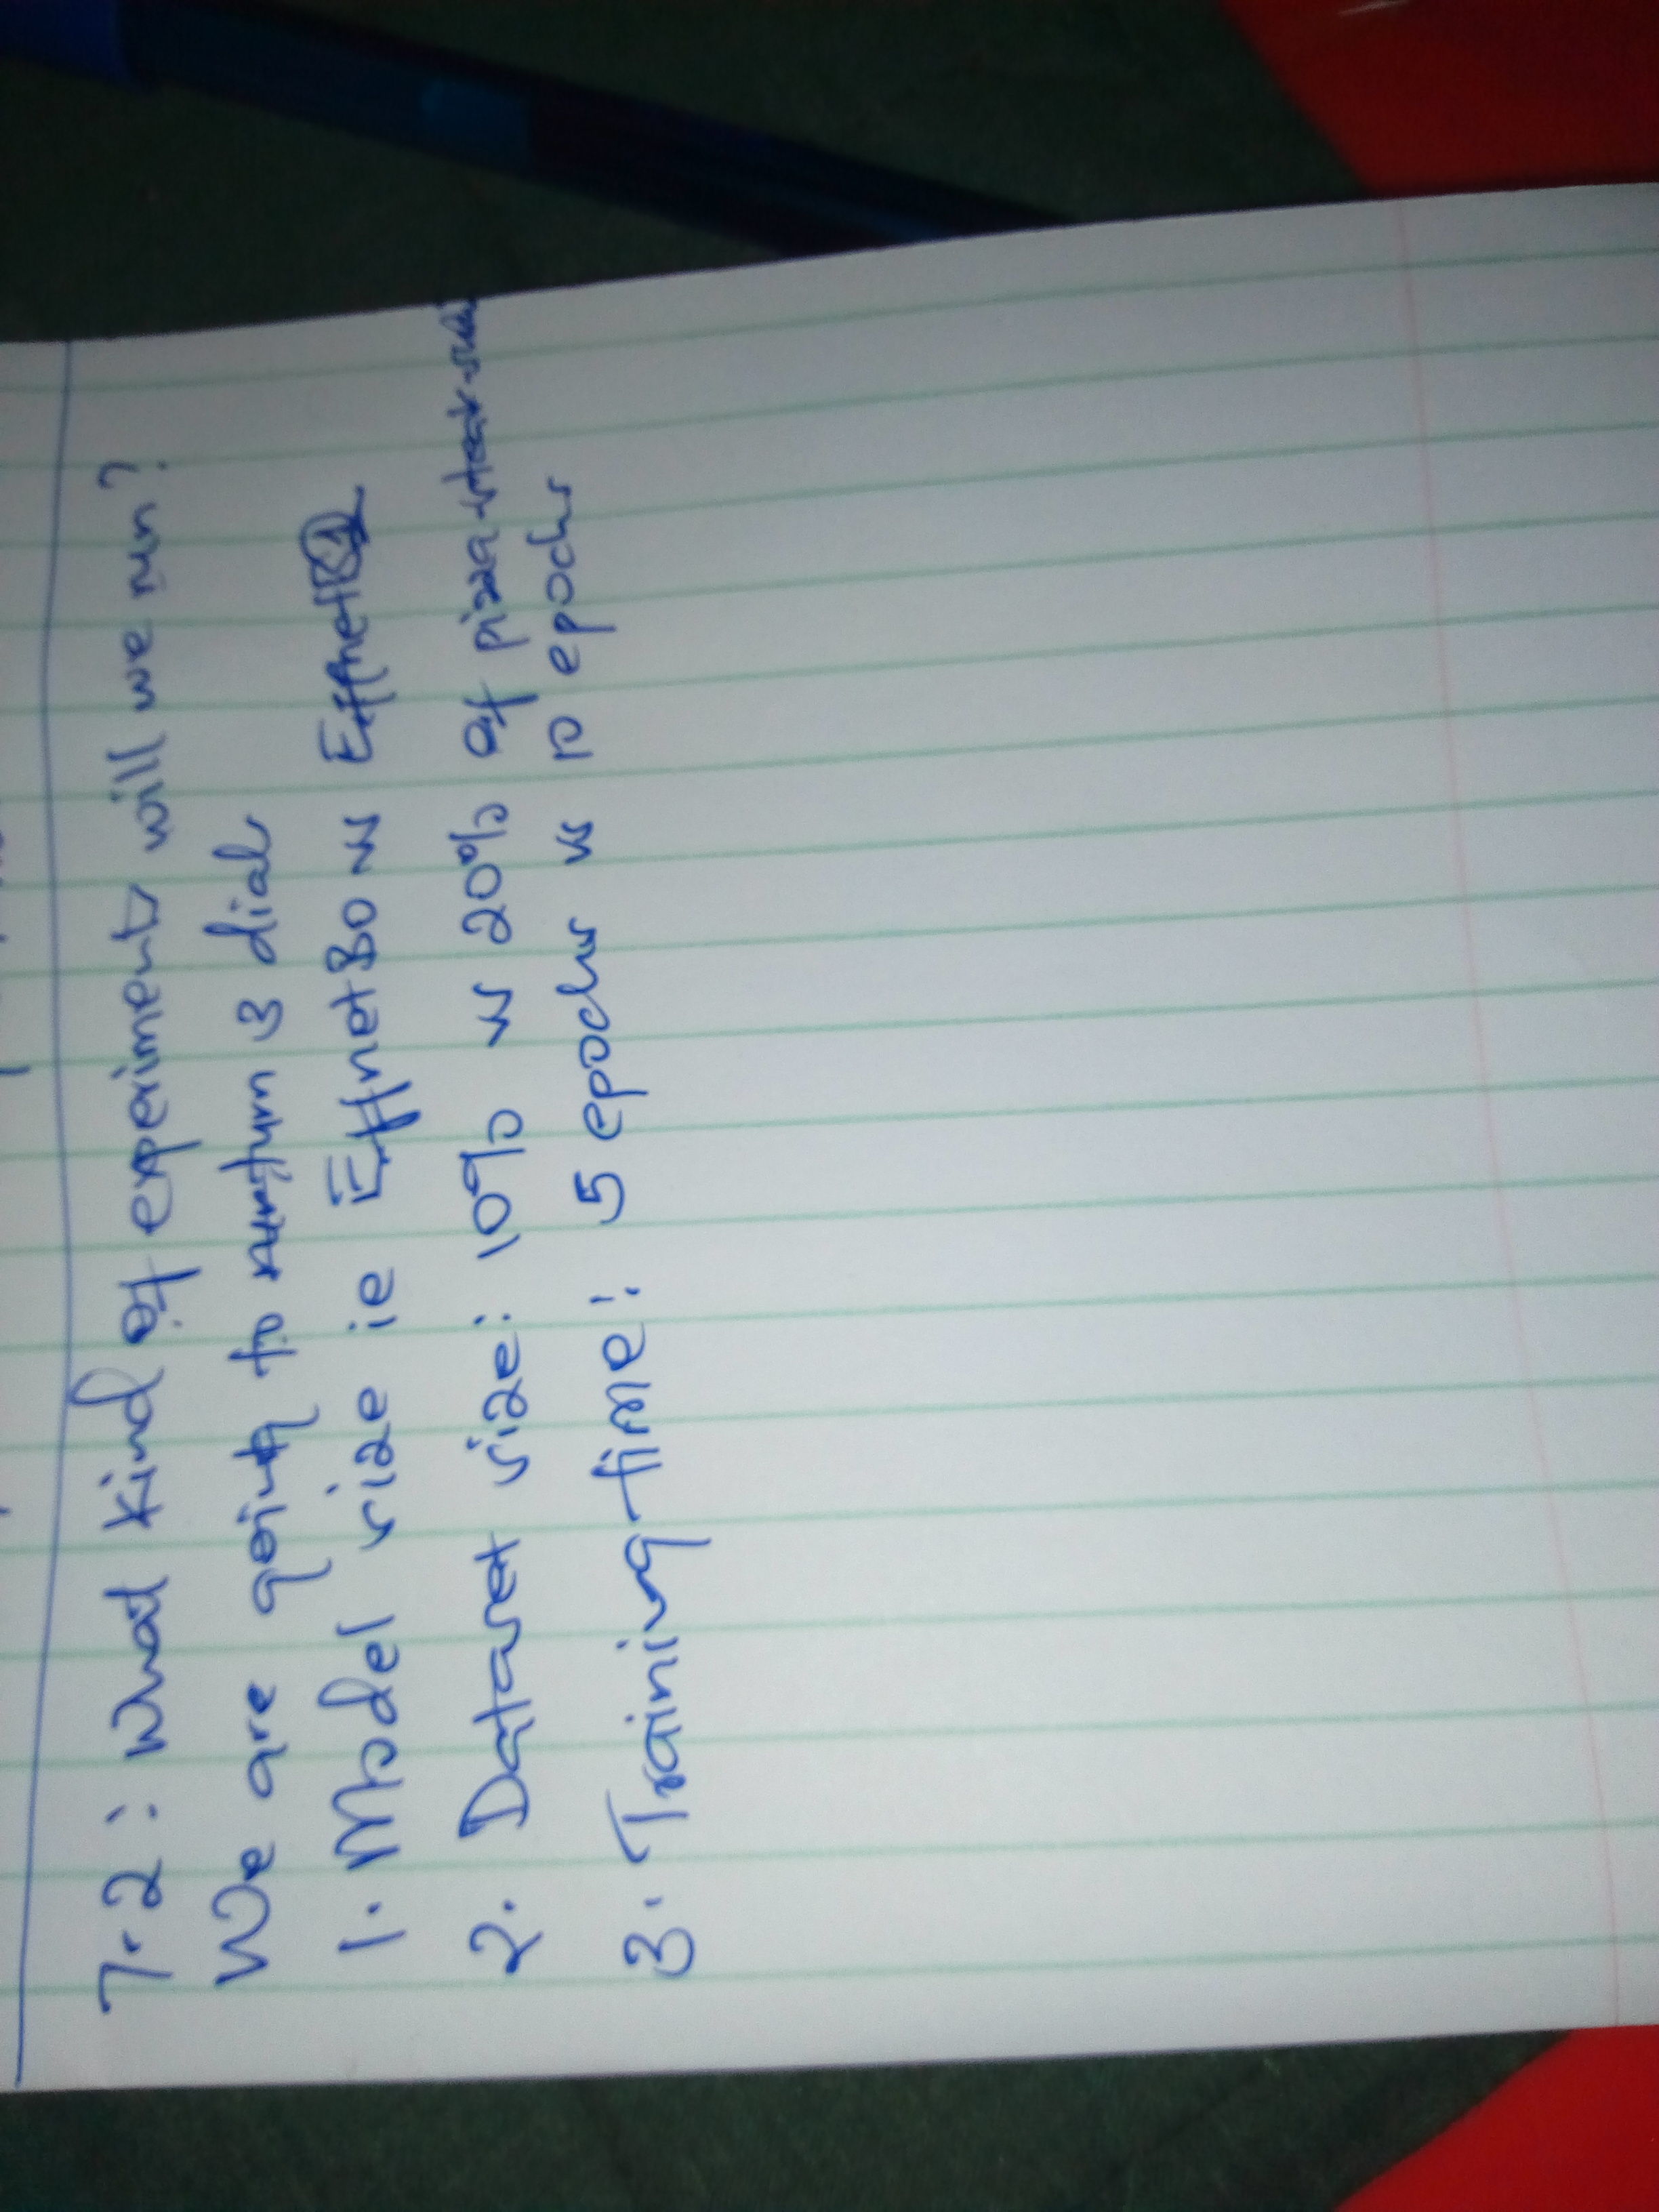 7.2: What kind of experiments will we run?
We are going to 3 dials
1. Model size ie EffnetB0 vs Effnet
2. Dataset size: 10% vs 20% of pizza, steak, sushi
3. Training time: 5 epochs vs 10 epochs